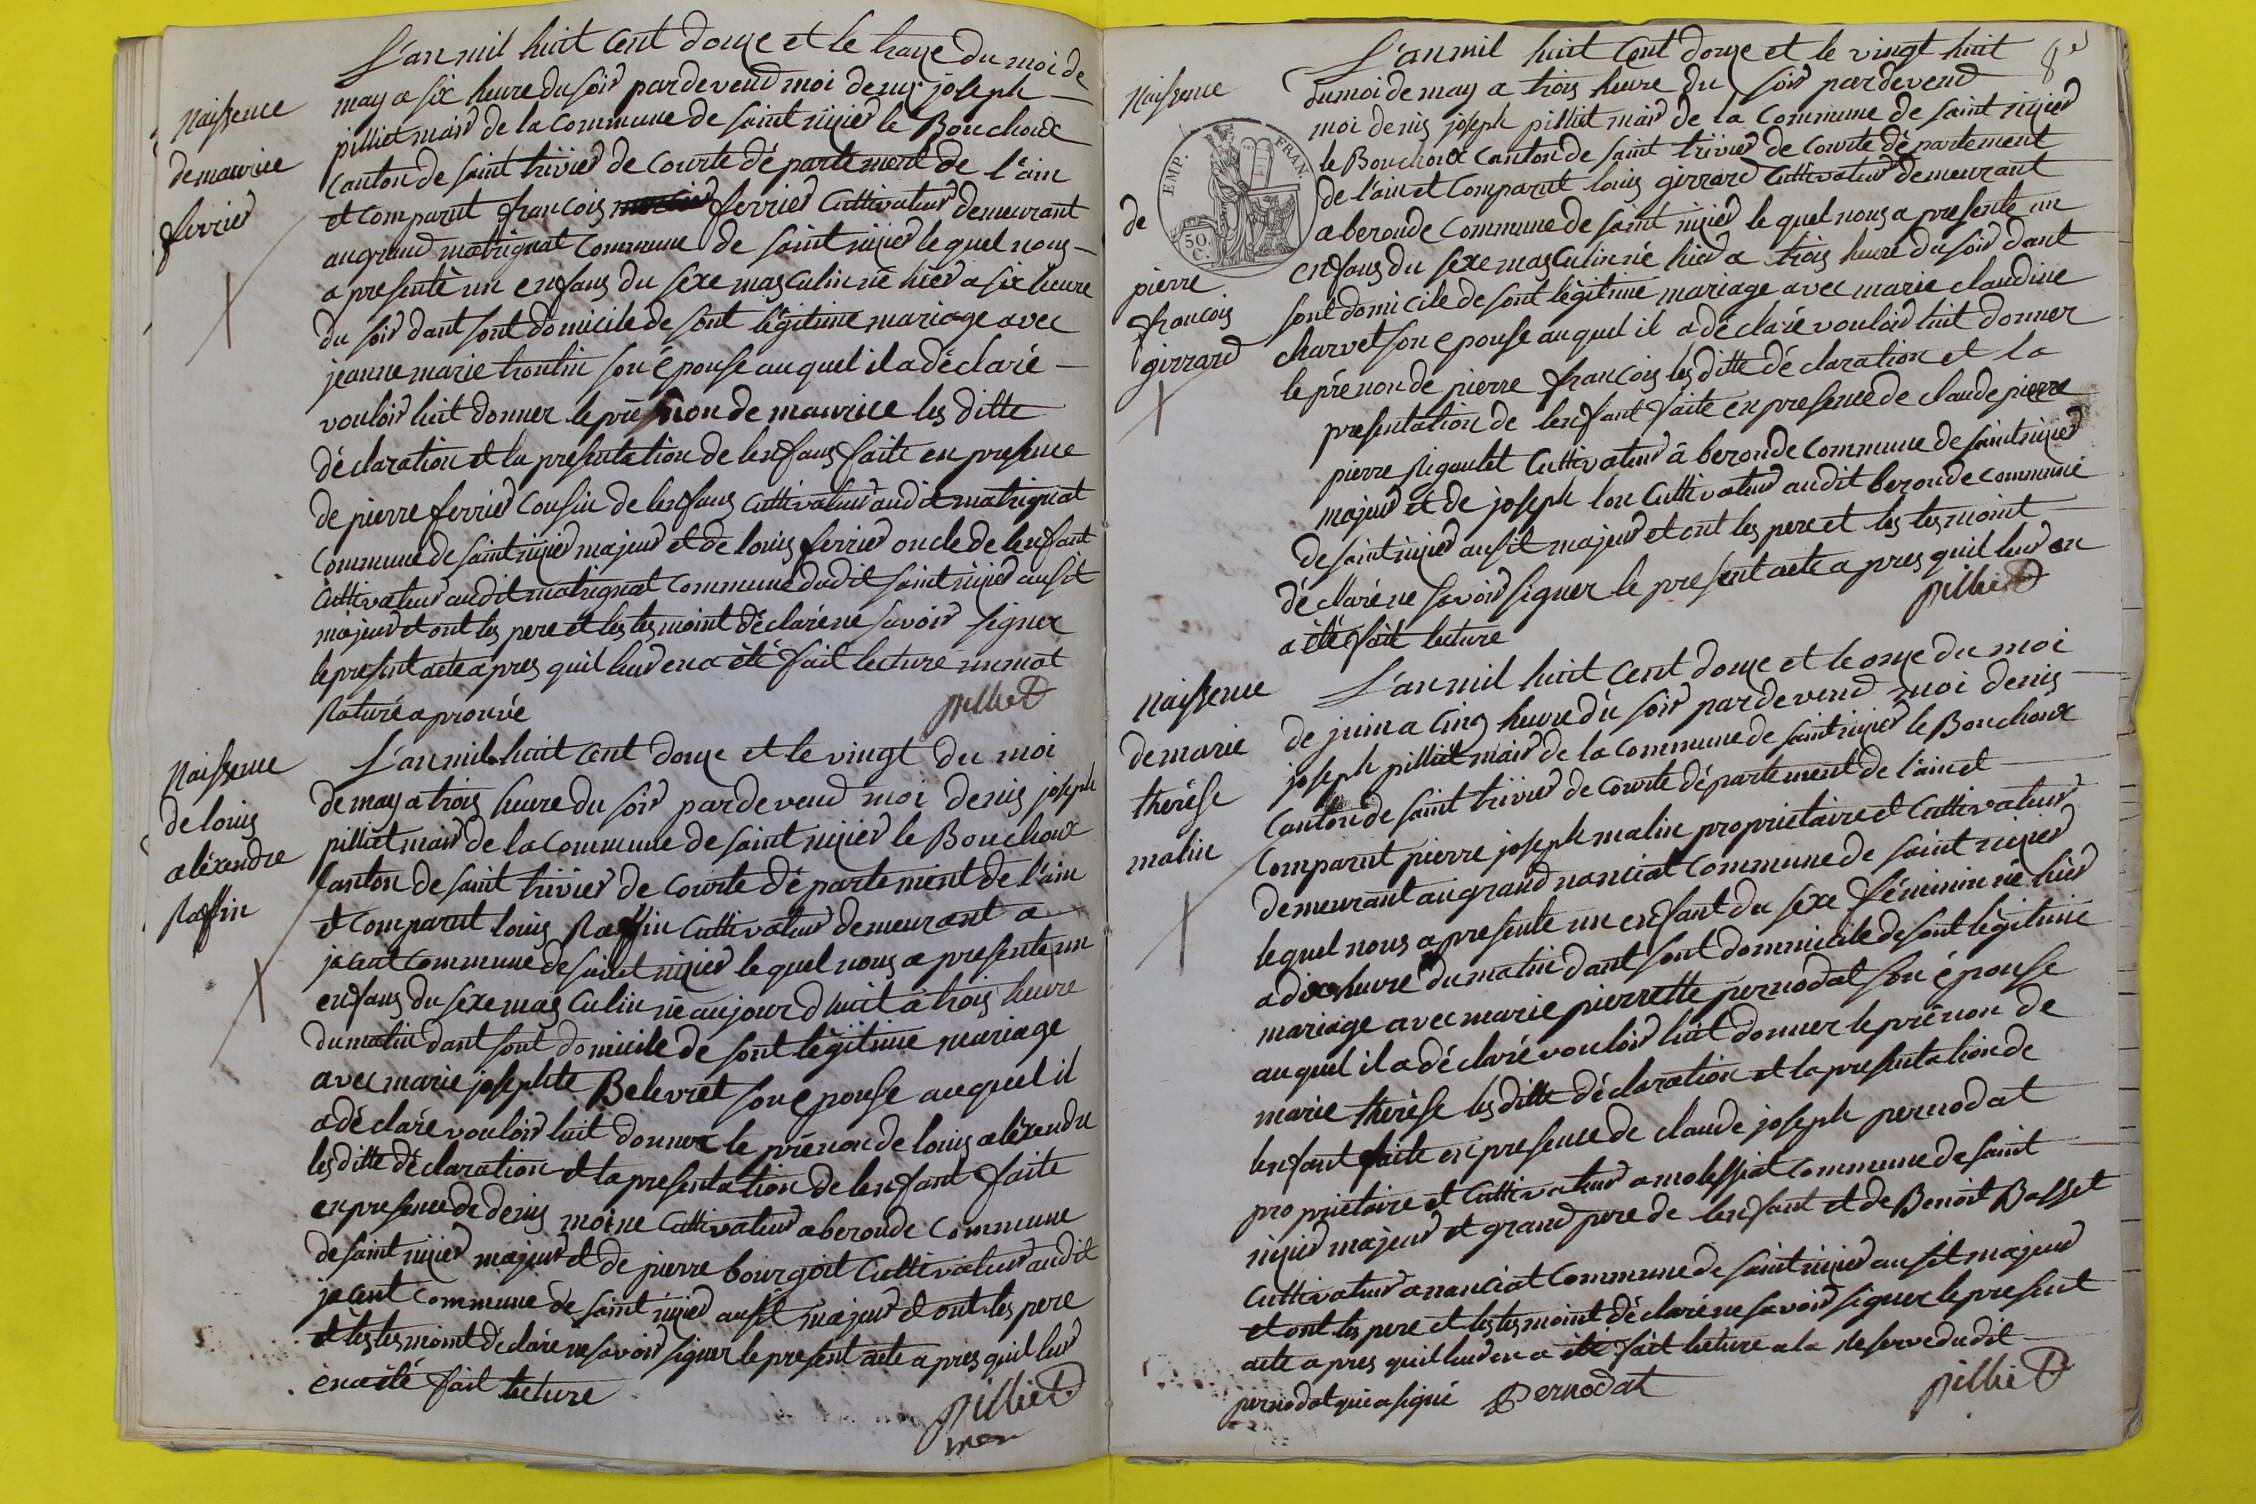 L'an mil huit cent douze et le traize du moi de
may a six heure du soir pardevend moi denis joseph
pilliet mair de la commune de saint nizier le Bouchoux
Canton de saint trivier de courte département de l'ain
et comparut francois ferrier cultivateur demeurant
au grand matrignat commune de saint nizier le quel nous
a presenté un enfans du sexe masculin né hier a six heure
du soir dant sont domicile de sont légitime mariage avec
jeanne marie troulin son épouse auquel il a déclaré
vouloir luit donner le prénon de maurice les ditte
déclaration et la presentation de lenfans faite en presence
de pierre ferrier cousin de lenfans cultivateur audit matrignat
commune de saint nizier majeur et de louis ferrier oncle de lenfant
cultivateur audit matrignat commune dudit saint nizier ausit
majeur et ont les pere et les tesmoint déclaré ne savoir signer
le present acte apres quil leur en a été fait lecture un mot
raturé aprouvé
pilliet
Naissence
de maurice
ferrier
L'an mil huit cent douze et le vingt du moi
de may a trois heure du soir pardevend moi denis joseph
pilliet mair de la commune de saint nizier le Bouchoux
canton de saint trivier de courte département de l'ain
et comparut louis Raffin cultivateur demeurant a
jacent commune de saint nizier le quel nous a presente un
enfans du sexe masculin né aujourd huit à trois heure
du matin dant sont domicile de sont légitime mariage
avec marie josephte Belevret son epouse auquel il
a déclaré vouloir luit donner le prénon de louis aléxendre
les ditte déclaration et la presentation de lenfant faite
en presence de denis moine cultivateur a beronde commune
de saint nizier majeur et de pierre bourgoit cultivateur audit
jacent commune de saint nizier ausit majeur et ont les pere
et les tesmoint déclaré ne savoir signer le present acte apres quil leur
en a été fait lecture
pilliet
mer
Naissence
de louis
aléxendre
Raffin
8e
L'an mil huit cent douze et le vingt huit
du moi de may a trois heure du soir pardevend
moi denis joseph pilliet mair de la commune de saint nizier
le Bouchoux canton de saint trivier de courte département
de l'ain et comparut louis girrard cultivateur demeurant
a beronde commune de saint nizier le quel nous a presente un
enfans du sexe masculin né hier a trois heure du soir dant
sont domicile de sont légitime mariage avec marie claudine
charvet son epouse auquel il a déclaré vouloir luit donner
le prénon de pierre francois les ditte déclaration et la
presentation de lenfant faite en presence de claude pierre
pierre Rigoulet cultivateur à beronde commune de saint nizier
majeur et de joseph lon cultivateur audit beronde commune
de saint nizier ausit majeur et ont les pere et les tesmoint
déclaré ne savoir signer le present acte apres quil leur en
a été fait lecture
pilliet
Naissence
de
pierre
francois
girrard
EMP. FRAN.
50.
C.
L'an mil huit cent douze et le onze du moi
de juin a cinq heure du soir pardevend moi denis
joseph pilliet mair de la commune de saint nizier le Bouchoux
Canton de saint trivier de courte département de l'ain et
comparut pierre joseph malin proprietaire et cultivateur
demeurant au grand nanciat commune de saint nizier
le quel nous a presente un enfant du sexe féminin né hier
a dix heure du matin dant sont dommicile de sont légitime
mariage avec marie pierrette pernodat son épouse
auquel il a déclaré vouloir luit donner le prénon de
marie thérèse les ditte déclaration et la presentation de
lenfant faite en presence de claude joseph pernodat
proprietaire et cultivateur a molessiat commune de saint
nizier majeur et grand pere de lenfant et de Benoit Basset
cultivateur a nanciat commune de saint nizier ausit majeur
et ont les pere et les tesmoint déclaré ne savoir signer le present
acte apres quil leur en a été fait lecture a la reserve dudit
pernodat qui a signé Pernodat
pilliet
Naissence
de marie
thérèse
malin